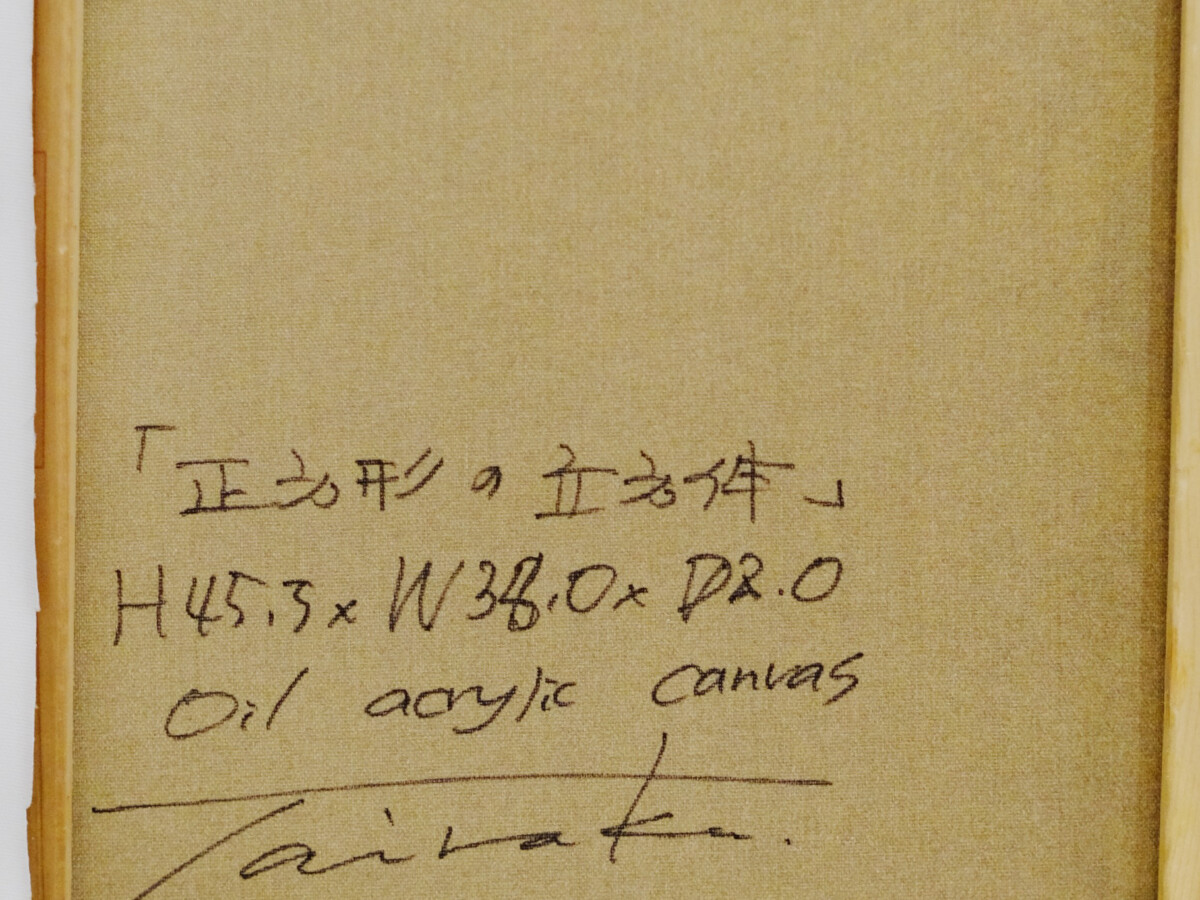 「正方形の立方体」
H45.5x W38.0x D2.0
Oil acrylic canvas
Tainaka.